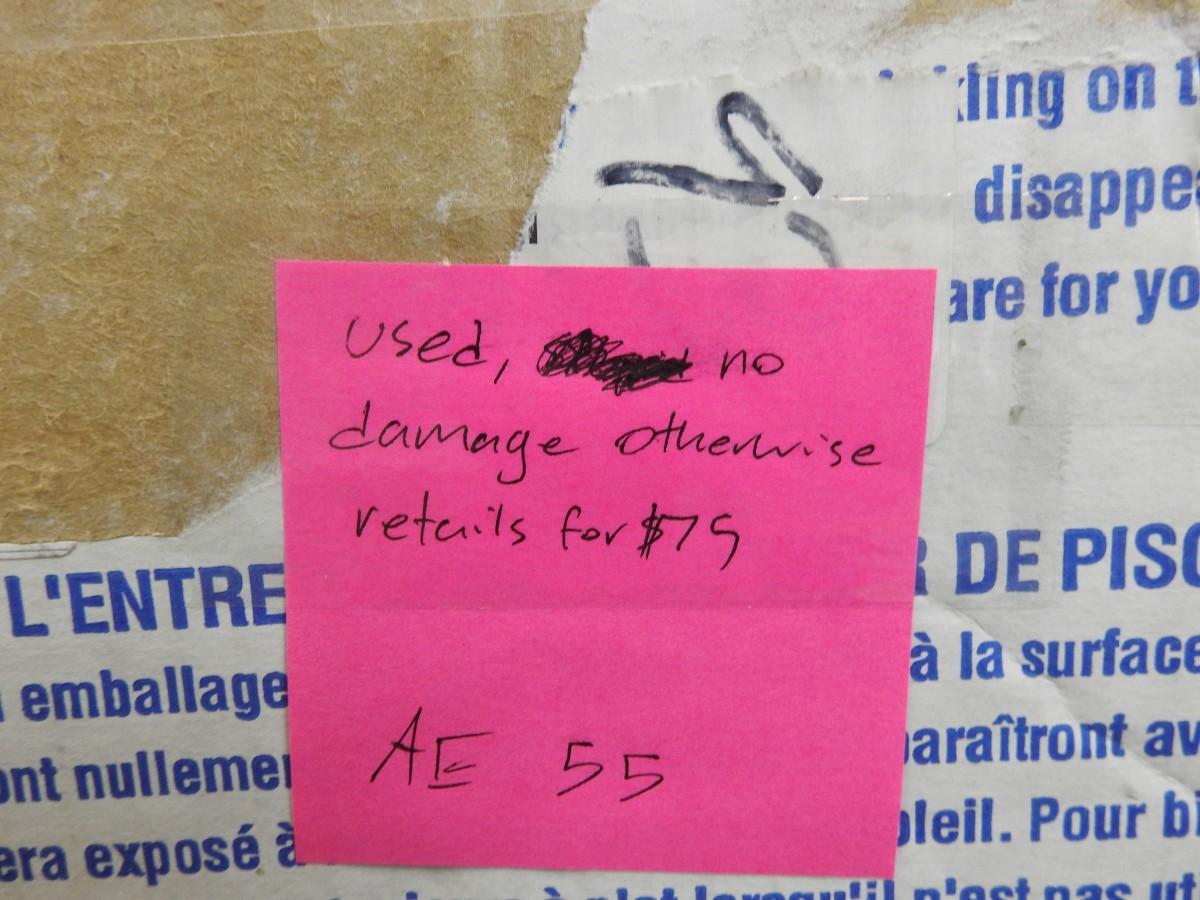 kling on t
disappe
are for yo
used, no
damage otherwise
retails for $75
AE 55
L'ENTRE
R DE PISC
emballage
à la surface
ont nullemen
paraîtront av
era exposé à
oleil. Pour bi
n'est pas ut